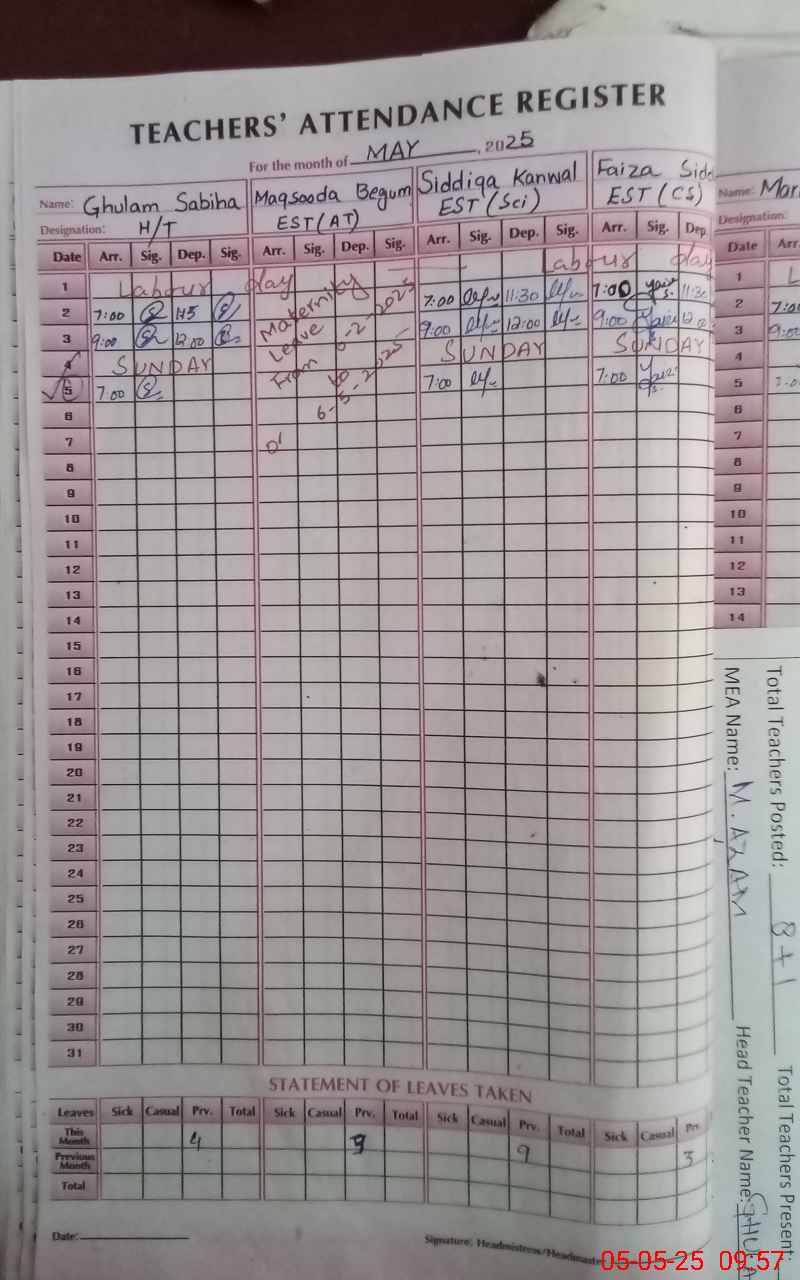 TEACHERS' ATTENDANCE REGISTER
For the month of MAY, 2025
Name: Ghulam Sabiha Maqsooda Begum Siddiqa Kanwal Faiza Sid Name: Mar
Designation: H/T EST(AT) EST(Sci) EST(CS) Designation:
Date Arr. Sig. Dep. Sig. Arr. Sig. Dep. Sig. Arr. Sig. Dep. Sig. Arr. Sig. Dep. Date Arr.
1 Labour Day Labour Day 1 L
2 7:00 7:00 11:30 7:00 11:30 2 7:00
3 9:00 12:00 9:00 12:00 9:00 3 9:00
4 SUNDAY SUNDAY SUNDAY 4
5 7:00 7:00 7:00 5
Maternity
Leave
From
to
6 6
7 7
8 8
9 9
10 10
11 11
12 12
13 13
14 14
15
16
17
18
19
20
21
22
23
24
25
26
27
28
29
30
31
STATEMENT OF LEAVES TAKEN
Leaves Sick Casual Prv. Total Sick Casual Prv. Total Sick Casual Prv. Total Sick Casual Prv.
This Month
Previous Month 4 9 9 3
Total
Date: Signature: Headmistress/Headmaster
Total Teachers Posted: 8+1 Total Teachers Present:
MEA Name: M. AZAM Head Teacher Name: GHULA
05-05-25 09:57